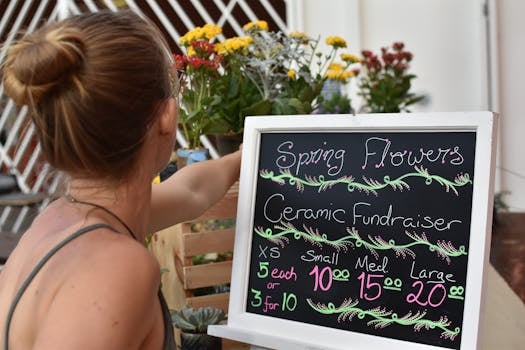 Spring Flowers
Ceramic Fundraiser
XS Small Med Large
5 each 10.00 15.00 20.00
or
3 for 10